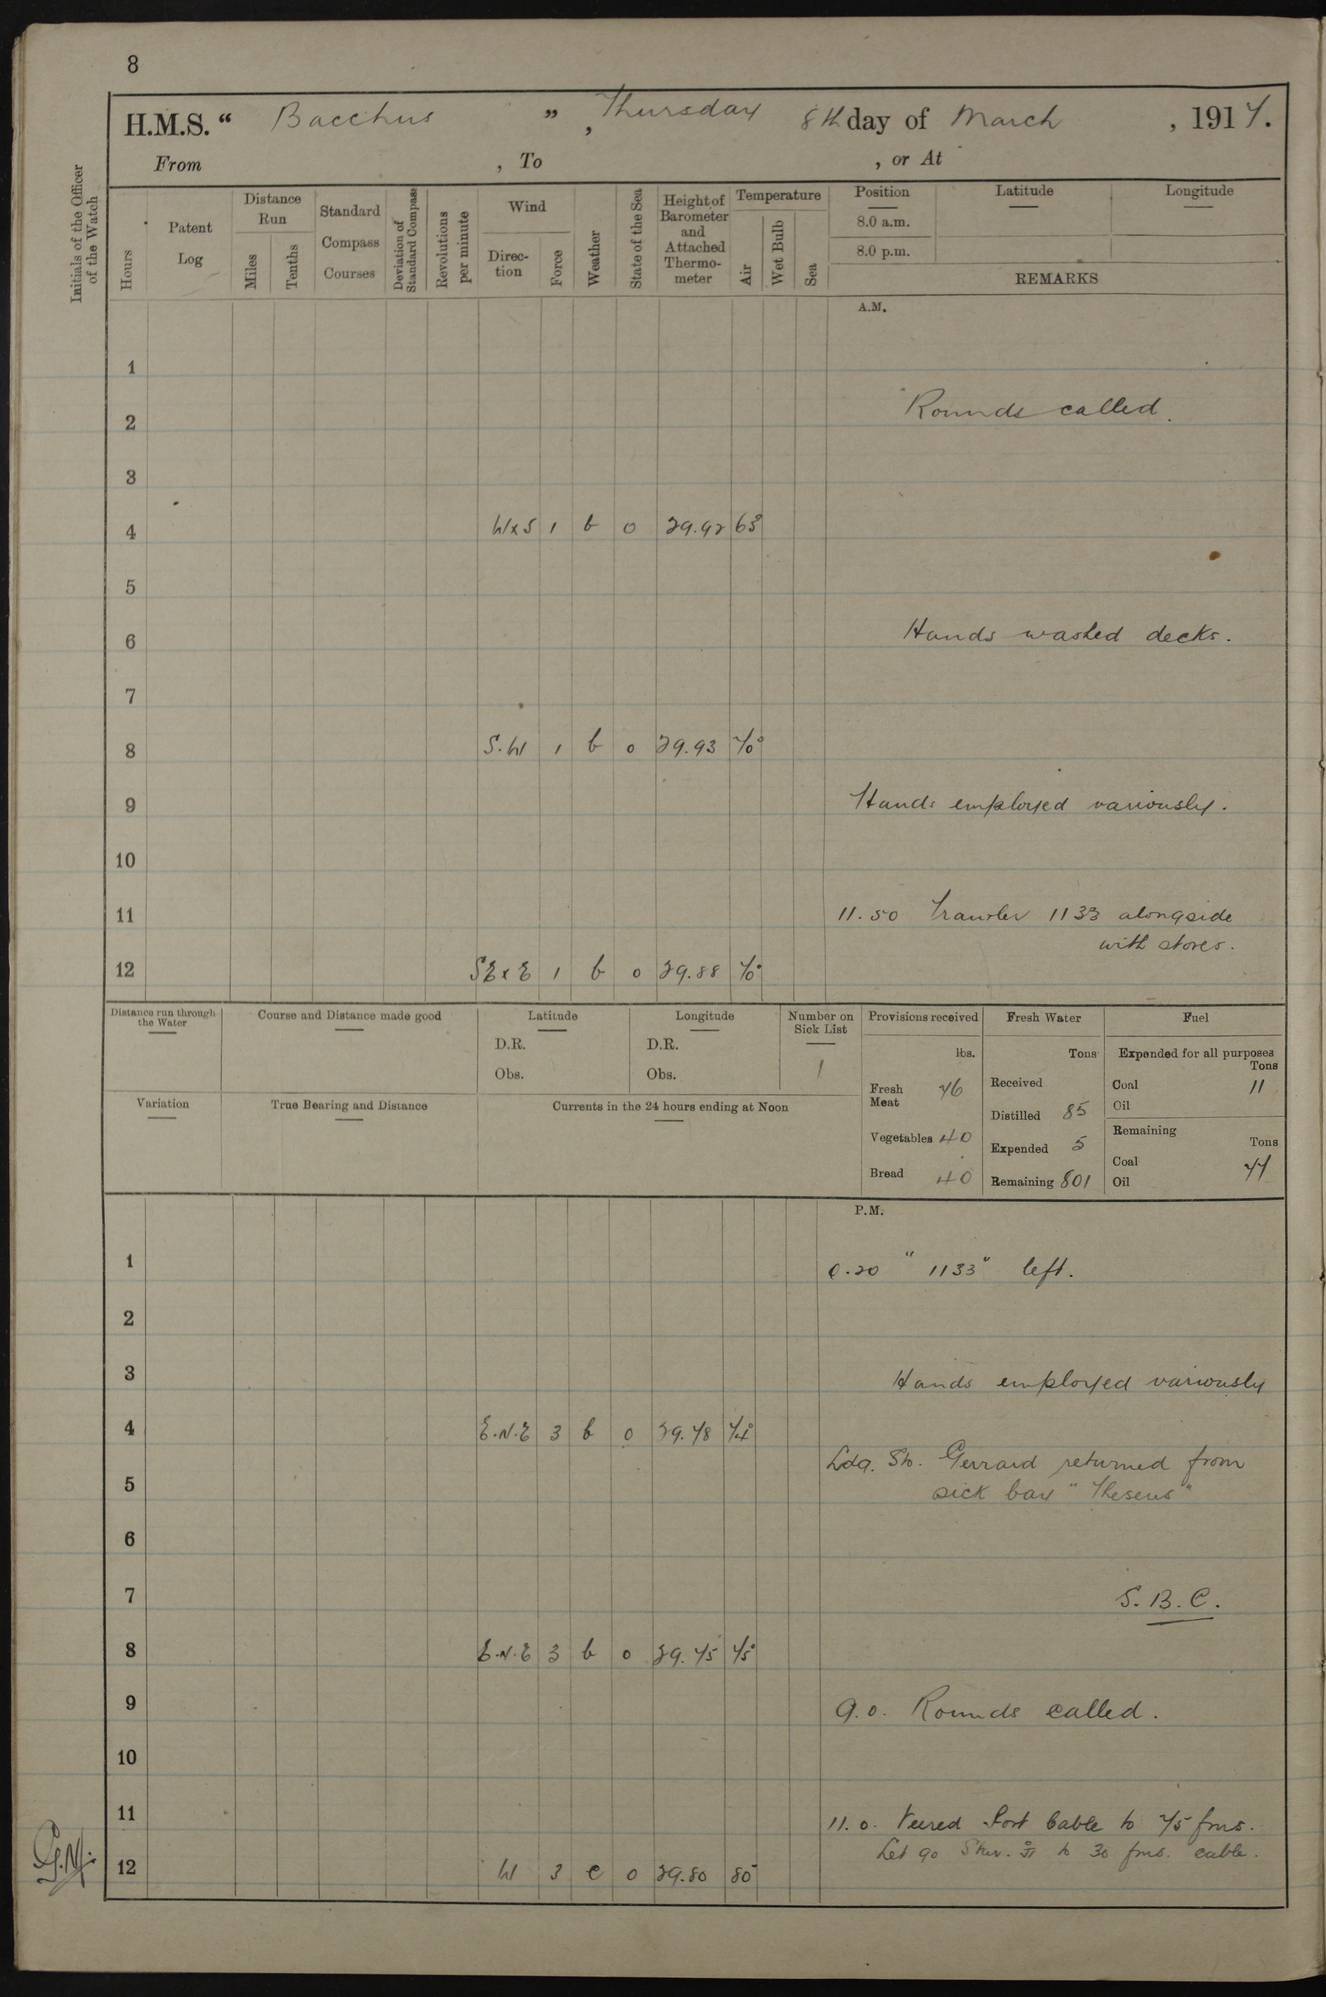 8
H.M.S. “ Bacchus ” , Thursday 8th day of March , 1917.
From , To , or At
Initials of the Officer of the Watch
Hours
Patent Log
Distance Run
Miles
Tenths
Standard Compass Courses
Deviation of Standard Compass
Revolutions per minute
Wind
Direc-tion
Force
Weather
State of the Sea
Height of Barometer and Attached Thermo-meter
Temperature
Air
Wet Bulb
Sea
Position
Latitude
Longitude
8.0 a.m.
8.0 p.m.
REMARKS
A.M.
1
2 Rounds called.
3
4 WxS 1 b 0 29.92 63°
5
6 Hands washed decks.
7
8 S.W 1 b 0 29.93 70°
9 Hands employed variously.
10
11 11.50 Trawler 1133 alongside
with stores.
12 SExE 1 b 0 29.88 70°
Distance run through the Water
Course and Distance made good
Latitude
D.R.
Obs.
Longitude
D.R.
Obs.
Number on Sick List
1
Provisions received
lbs.
Fresh Meat 76
Vegetables 40
Bread 40
Fresh Water
Tons
Received
Distilled 85
Expended 5
Remaining 801
Fuel
Expended for all purposes
Tons
Coal 11
Oil
Remaining
Tons
Coal 77
Oil
Variation
True Bearing and Distance
Currents in the 24 hours ending at Noon
P.M.
1 0.20 " 1133" left.
2
3 Hands employed variously
4 E.N.E 3 b 0 29.78 74°
Ldg. Sto. Gerrard returned from
5 sick bay "Theseus"
6
7 S.B.C.
8 E.N.E 3 b 0 29.75 75°
9 9.0. Rounds called.
10
11 11.0. Veered Port Cable to 75 fms.
Let go to 30 fms. cable.
12 W 3 c 0 29.80 80°